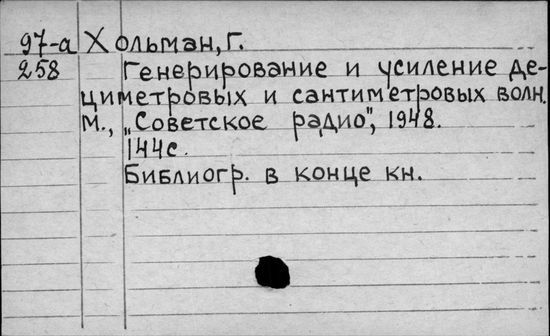 97-а Хольман, Г.
258 Генерирование и усиление де-
циметровых и сантиметровых волн.
М., „Советское радио", 1948.
144с.
Библиогр. в конце кн.